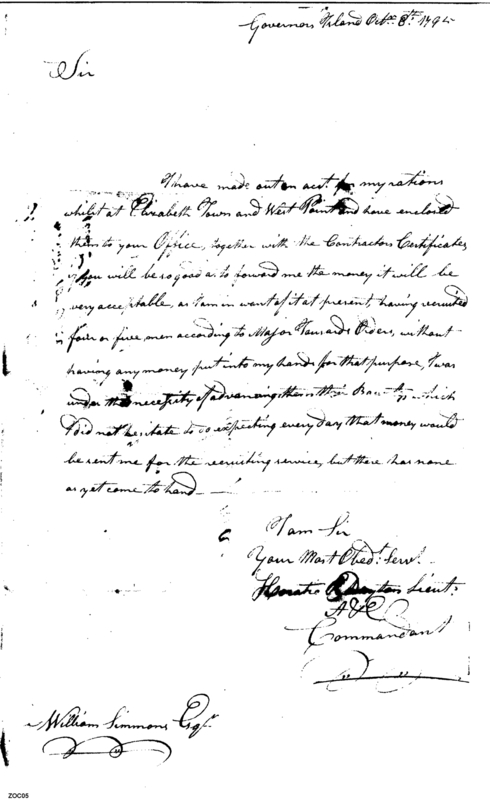 Governors Island Octr. 8th. 1795
Sir
I have made out an acct. for my rations
whilst at Elizabeth Town and West Point and have enclosed
them to your Office, together with the Contractors Certificates
if you will be so good as to forward me the money it will be
very acceptable, as I am in want of it at present, having recruited
four or five men according to Major Orders, without
having any money put into my hands for that purpose, I was
under the necessity of advancing them their Bounty, which
I did not hesitate to do expecting every day that money would
be sent me for the recruiting service, but there has none
as yet come to hand —
I am Sir
Your Most Obedt. Servt.
Horatio R Dayton Lieut.
A&E
Commandant
William Simmons Esqr.
ZOC05